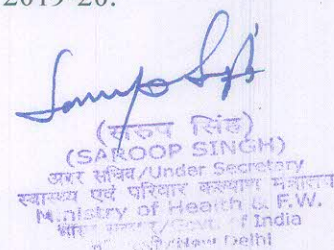 2019-20.
(सरुप सिंह)
(SAROOP SINGH)
अवर सचिव/Under Secretary
स्वास्थ्य एवं परिवार कल्याण मंत्रालय
Ministry of Health & F.W.
भारत सरकार/Govt. of India
/New Delhi